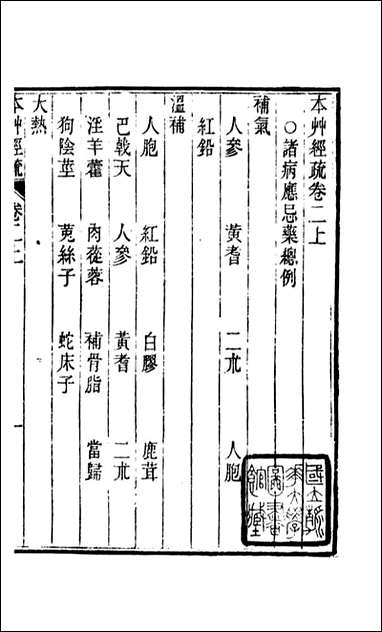 本艸經疏卷二上
○諸病應忌藥總例
補氣
人參 黃耆 二朮 人胞
紅鉛
溫補
人胞 紅鉛 白膠 鹿茸
巴戟天 人參 黃耆 二朮
淫羊藿 肉蓯蓉 補骨脂 當歸
狗陰莖 菟絲子 蛇床子
大熱
本艸經疏 卷二上 一
國立浙
江大學
圖書
館藏